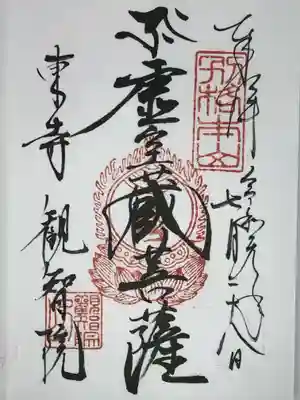 奉拝
令和元年
七月二十八日
別格本山
虚空蔵菩薩
東寺
観智院